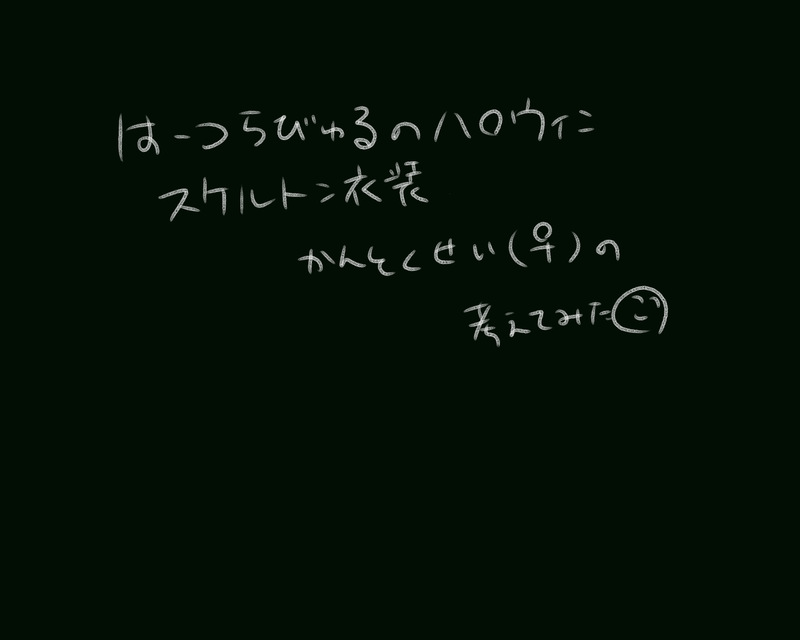 はーつらびゅるのハロウィン
スケルトン衣装
かんとくせい(♀)の
考えてみた